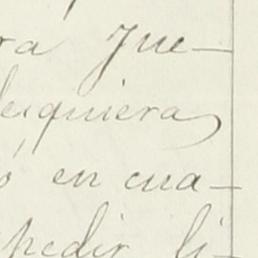 ra Jue-
lesquiera
ó en cua-
pedir li-